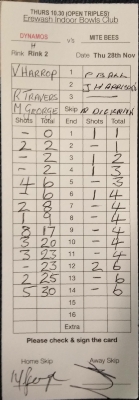 THURS 10.30 (OPEN TRIPLES)
Erewash Indoor Bowls Club
DYNAMOS v/s MITE BEES
H
Rink Rink 2 Date Thu 28th Nov
V HARROP 1 P BALL
2 J HARRISON
R TRAVERS 3
M GEORGE Skip
Shots Total End Shots Total
- 0 1 1 1
2 2 2 - 1
- 2 3 1 2
- 2 4 1 3
4 6 5 - 3
- 6 6 1 4
2 8 7 - 4
1 9 8 - 4
8 17 9 - 4
3 20 10 - 4
3 23 11 - 4
- 23 12 2 6
2 25 13 - 6
5 30 14 - 6
15
16
Extra
Please check & sign the card
Home Skip Away Skip
M George